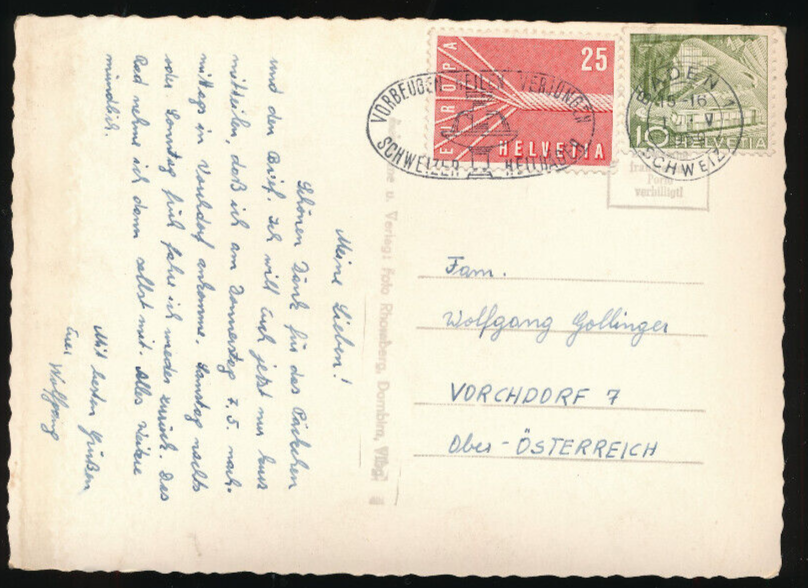 Meine Lieben!
Schönen Dank für das Päckchen
und den Brief. Ich will Euch jetzt nur kurz
mitteilen, daß ich am Donnerstag 7.5. nach-
mittags in Vorchdorf ankomme. Samstag nachts
oder Sonntag früh fahre ich wieder zurück. Das
Rad nehme ich dann selbst mit. Alles Weitere
mündlich.
Mit besten Grüßen
Euer Wolfgang
u. Verlag: Foto Rhomberg, Dornbirn, Vlbg.
EUROPA
25
HELVETIA
VORBEUGEN HEILEN VERJÜNGEN
SCHWEIZER HEILBÄDER
10
HELVETIA
BADEN 1
15-16
V
SCHWEIZ
Porto
verbilligt!
Fam.
Wolfgang Gollinger
VORCHDORF 7
Ober-ÖSTERREICH